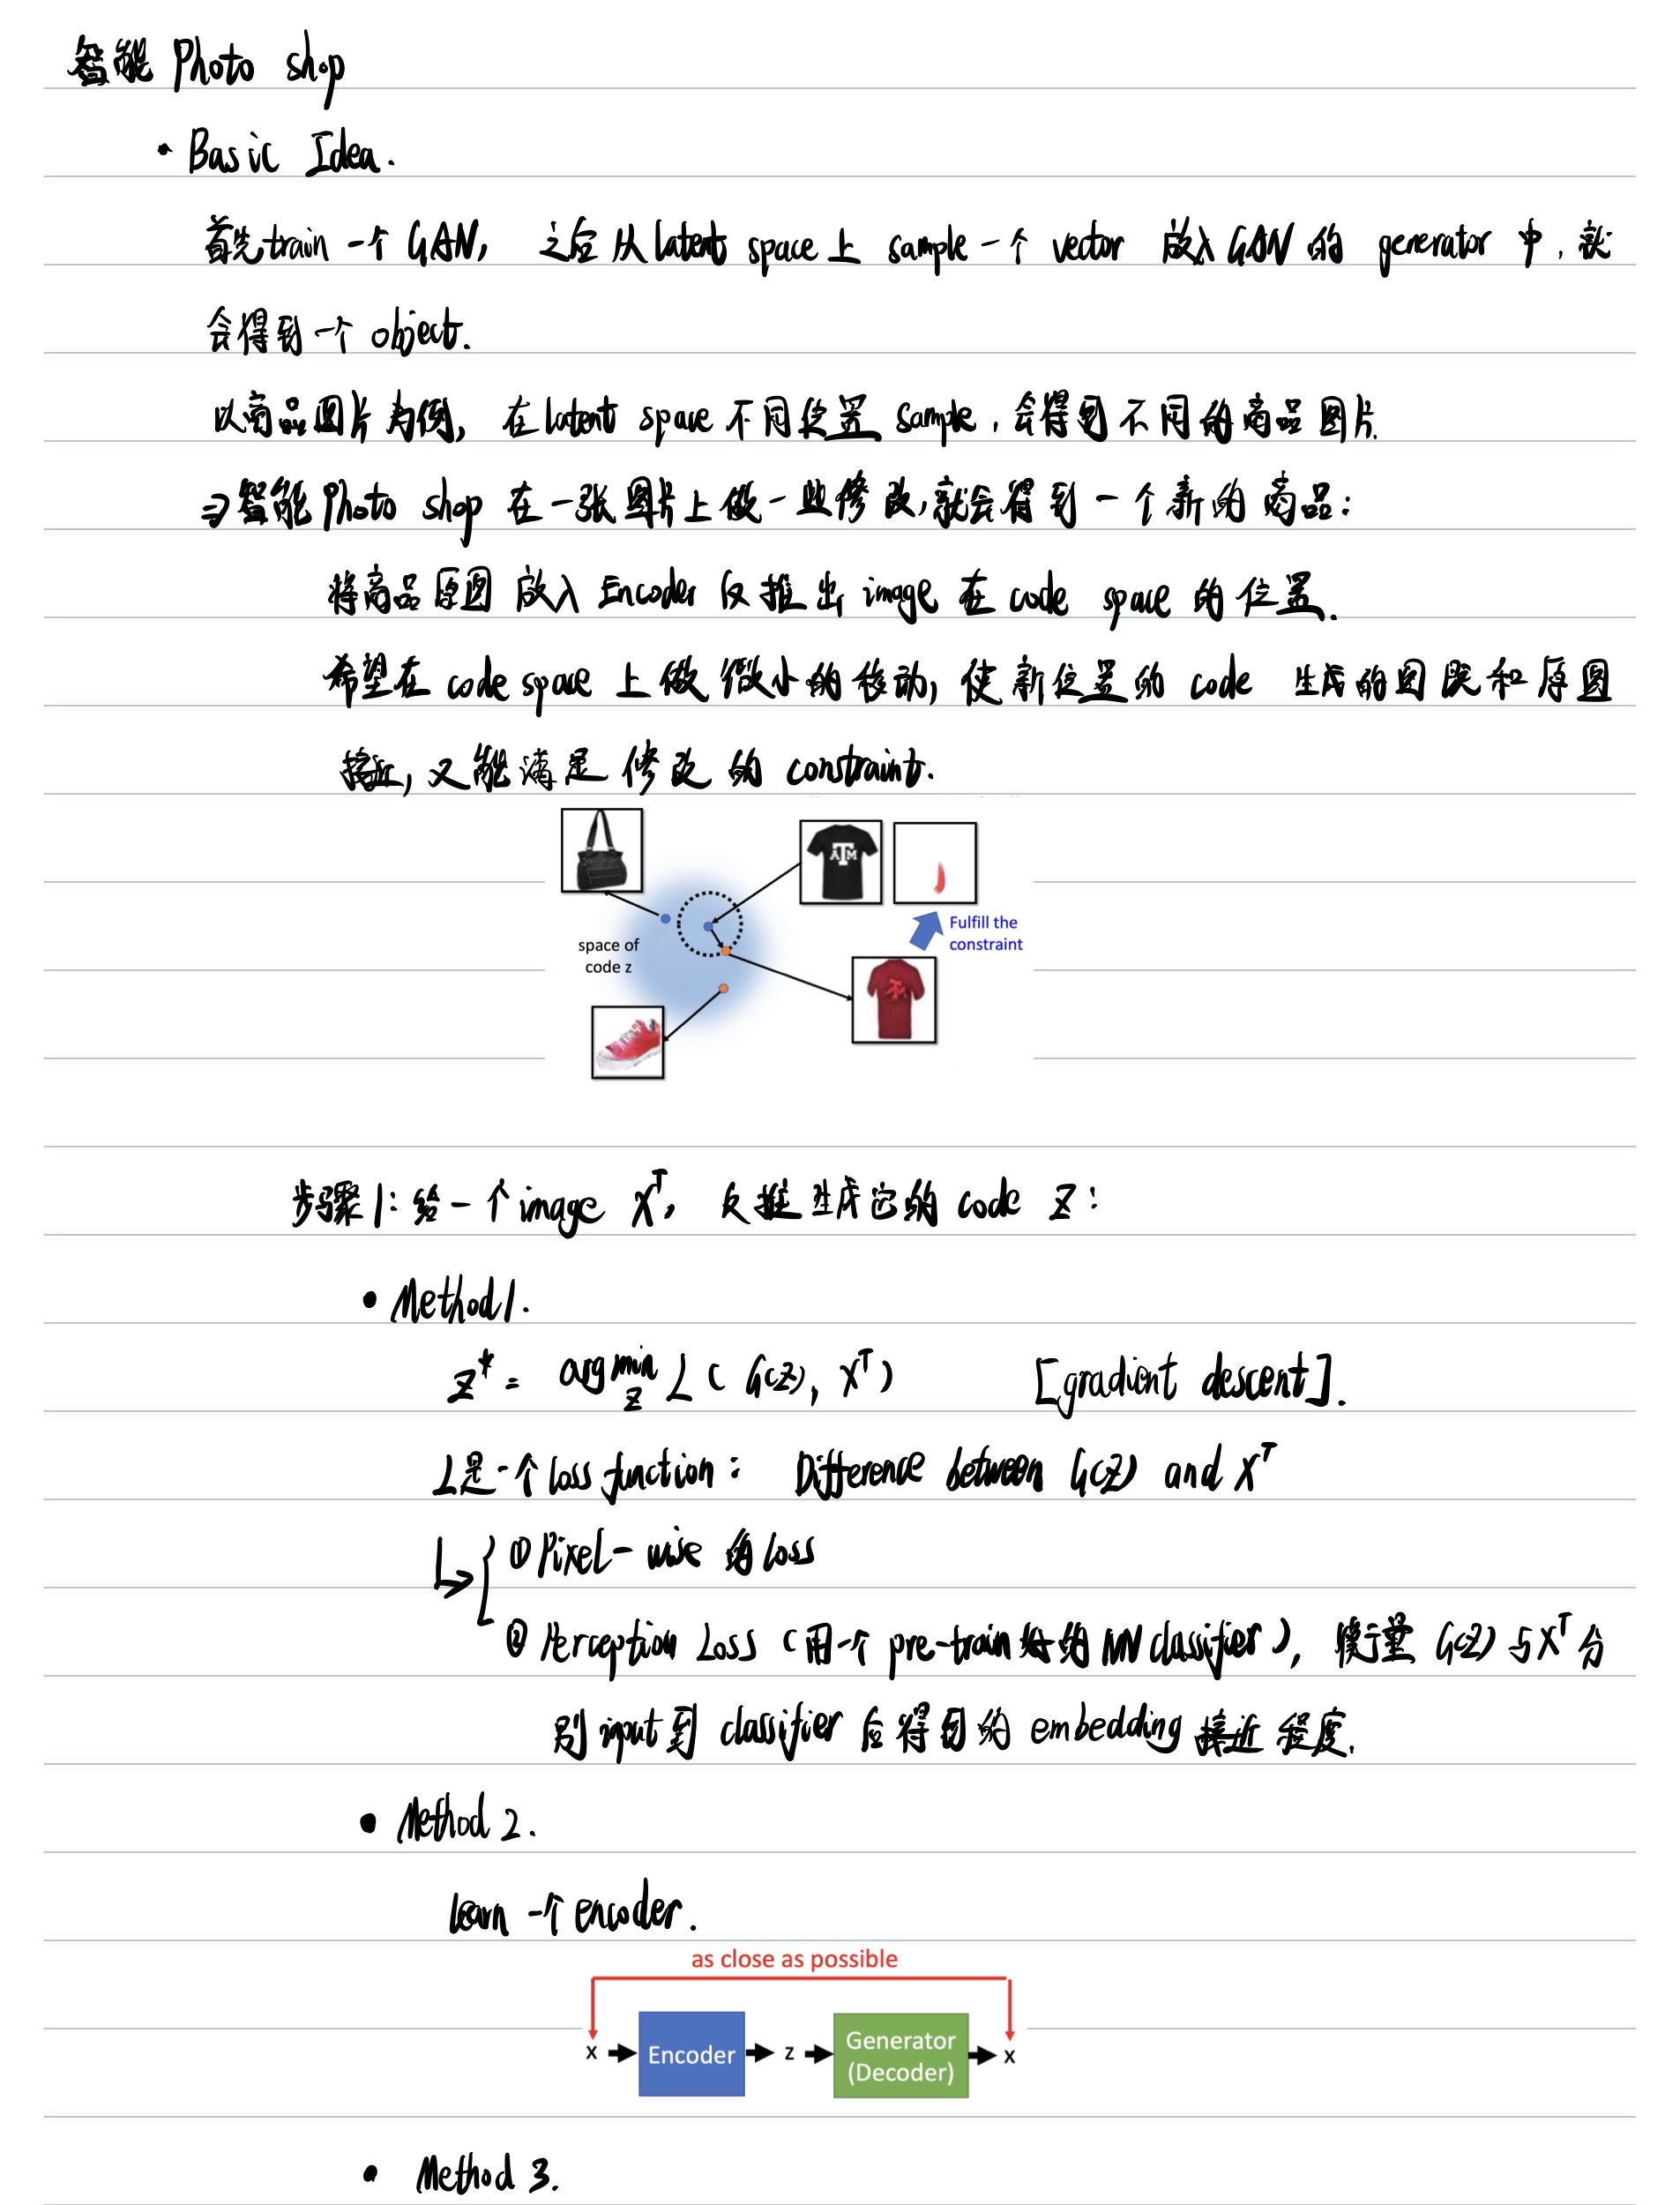 智能 Photo shop
• Basic Idea.
首先train 一个 GAN, 之后从latent space上 sample一个 vector 放入GAN的 generator 中, 就
会得到一个 object.
以商品图片为例, 在latent space不同位置 sample, 会得到不同的商品图片.
⇒智能 Photo shop 在一张图片上做一些修改,就会得到一个新的商品:
将商品原图放入 Encoder 反推出 image 在 code space 的位置.
希望在 code space 上做微小的移动, 使新位置的 code 生成的图既和原图
接近, 又能满足修改的 constraint.
ATM
Fulfill the
constraint
space of
code z
步骤1: 给一个image X^T, 反推生成它的 code Z:
• Method 1.
Z* = arg min_Z L ( G(Z), X^T ) [gradient descent].
L是一个 loss function: Difference between G(Z) and X^T
↳ { ① Pixel-wise 的 loss
② Perception Loss (用一个 pre-train 好的 NN classifier), 衡量 G(Z) 与 X^T 分
别 input 到 classifier 后得到的 embedding 接近程度.
• Method 2.
learn 一个 encoder.
as close as possible
x Encoder z Generator
(Decoder) x
• Method 3.